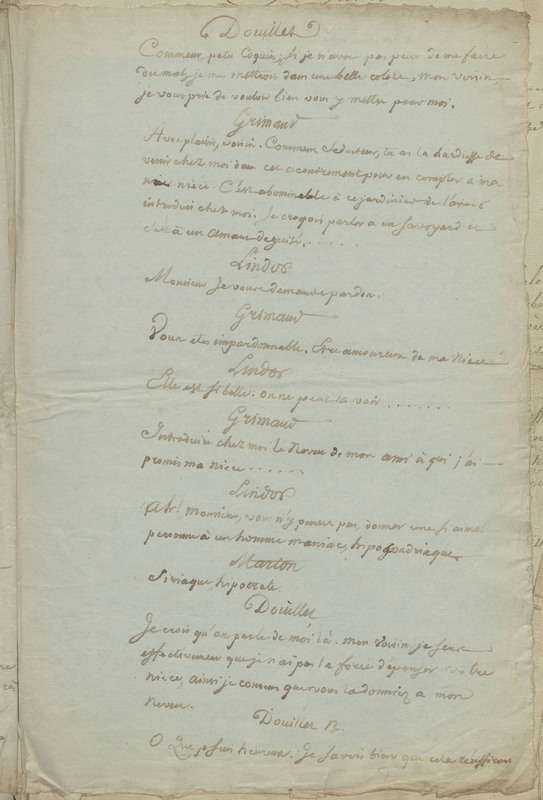 Douillet
Comment petit Coquin, si je n'avois pas peur de me faire
du mal, je me mettrois dans une belle colere, mon voisin,
je vous prie de vouloir bien vous y mettre pour moi.
Grimaud
Avec plaisir, voisin. Comment Seducteur, tu as la hardiesse de
venir chez moi dans cet accoutrement pour en compter a ma
niece. C'est abominable à ce jardinier de l'avoir
introduit chez moi. Je croyois parler a un Savoyard et
c'est à un amant deguisé. . . . . .
Lindor
Monsieur Je vous demande pardon.
Grimaud
Vous etes impardonnable. Etre amoureux de ma Niece
Lindor
Elle est si belle. on ne peut la voir . . . . . . .
Grimaud
Introduire chez moi le Neveu de mon ami à qui j'ai
promis ma niece . . . . . .
Lindor
Ah! monsieur, vous n'y pensez pas, donner une si aimable
personne à un homme maniac, hipocondriaque
Marton
hipocrate.
Douillet
Je crois qu'on parle de moi là. mon Voisin je sens
effectivement que je n'ai pas la force d'epouser votre
niece, ainsi je consens que vous la donniez a mon
Neveu.
Douillet N.
O que je suis heureux. Je savois bien que cela réussiroit